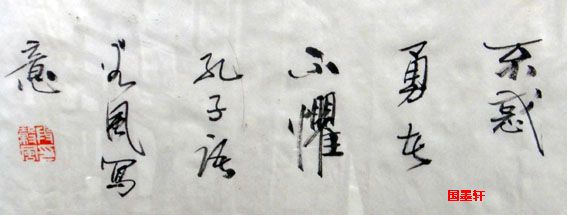 不惑
勇者
不懼
孔子語
谷風寫
意
国墨轩